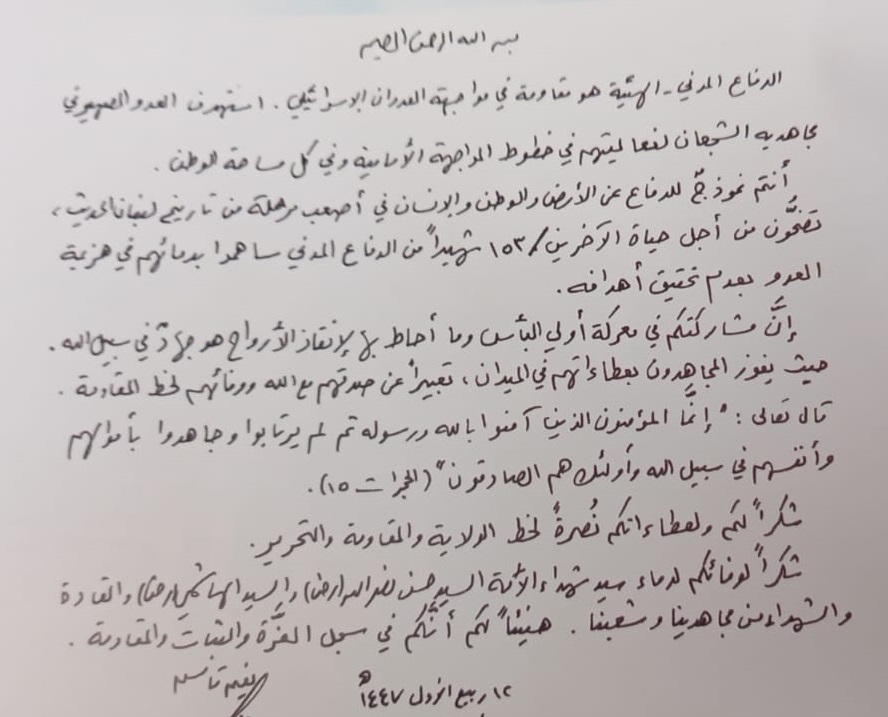 بسم الله الرحمن الرحيم
الدفاع المدني - الهيئة هو مقاومة في مواجهة العدوان الإسرائيلي. استهدف العدو الصهيوني
مجاهديه الشجعان لفعاليتهم في خطوط المواجهة الأمامية وفي كل مساحة الوطن.
أنتم نموذجٌ للدفاع عن الأرض والوطن والإنسان في أصعب مرحلة من تاريخ لبنان الحديث،
تضحُّون من أجل حياة الآخرين / ١٥٣ شهيداً من الدفاع المدني ساهموا بدمائهم في هزيمة
العدو بعدم تحقيق أهدافه.
إنَّ مشاركتكم في معركة أولي البأس وما أحاط بها لإنقاذ الأرواح هو جهادٌ في سبيل الله.
حيث يفوز المجاهدون بعطاءاتهم في الميدان، تعبيراً عن صدقهم مع الله ووفائهم لخط المقاومة.
قال تعالى: "إنَّما المؤمنون الذين آمنوا بالله ورسوله ثم لم يرتابوا وجاهدوا بأموالهم
وأنفسهم في سبيل الله وأولئك هم الصادقون" (الحجرات ١٥).
شكراً لكم ولعطاءاتكم نُصرةً لخط الولاية والمقاومة والتحرير.
شكراً لوفائكم لدماء سيد شهداء الأمة السيد حسن نصر الله (رض) والسيد الهاشمي (رض) والقادة
والشهداء من مجاهدينا وشعبنا. هنيئاً لكم أنَّكم في سجل العزَّة والثبات والمقاومة.
نعيم قاسم
١٢ ربيع الأول ١٤٤٧هـ